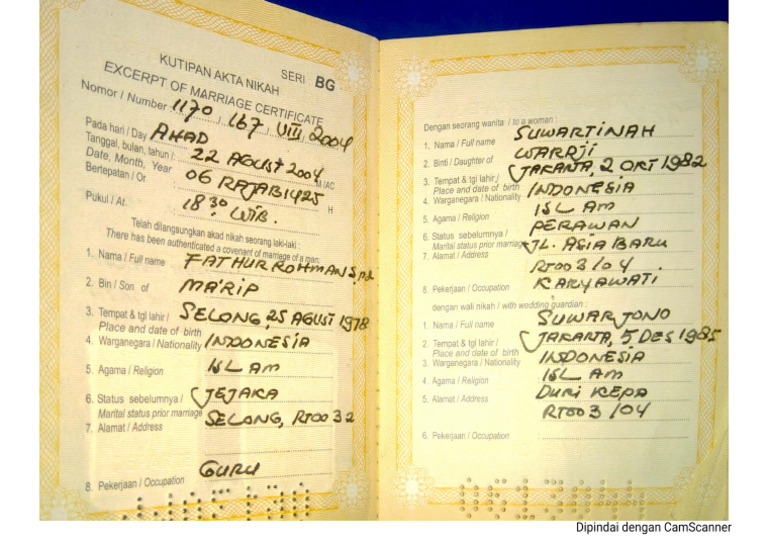 KUTIPAN AKTA NIKAH SERI BG
EXCERPT OF MARRIAGE CERTIFICATE
Nomor / Number 1170 / 167 / VIII / 2004
Pada hari / Day AHAD
Tanggal, bulan, tahun / 22 AGUST 2004 M/AC
Date, Month, Year
Bertepatan / Or 06 RAJAB 1425 H
Pukul / At 18 30 WIB.
Telah dilangsungkan akad nikah seorang laki-laki :
There has been authenticated a covenant of marriage of a man:
1. Nama / Full name FATHURROHMAN S.pd
2. Bin / Son of MA'RIP
3. Tempat & tgl lahir / SELONG, 25 AGUST 1978
Place and date of birth
4. Warganegara / Nationality INDONESIA
5. Agama / Religion ISLAM
6. Status sebelumnya / JEJAKA
Marital status prior marriage
7. Alamat / Address SELONG, RT003 2
8. Pekerjaan / Occupation GURU
Dengan seorang wanita / to a woman :
1. Nama / Full name SUWARTINAH
2. Binti / Daughter of WARDJI
3. Tempat & tgl lahir / JAKARTA, 2 OKT 1982
Place and date of birth
4. Warganegara / Nationality INDONESIA
5. Agama / Religion ISLAM
6. Status sebelumnya / PERAWAN
Marital status prior marriage
7. Alamat / Address JL. ASIA BARU
RT003/04
8. Pekerjaan / Occupation KARYAWATI
dengan wali nikah / with wedding guardian :
1. Nama / Full name SUWARJONO
2. Tempat & tgl lahir / JAKARTA, 5 DES 1985
Place and date of birth
3. Warganegara / Nationality INDONESIA
4. Agama / Religion ISLAM
5. Alamat / Address DURI KEPA
RT003/04
6. Pekerjaan / Occupation
Dipindai dengan CamScanner